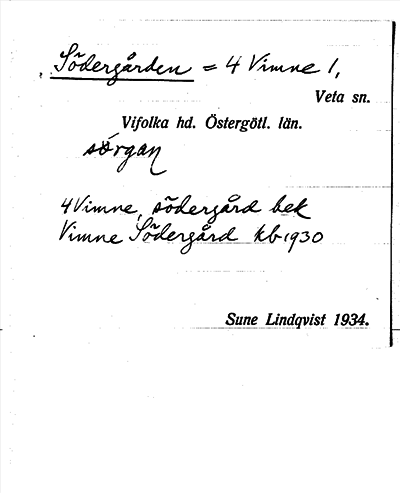 Södergården = 4 Vimne 1,
Veta sn.
Vifolka hd. Östergötl. län.
sö́rgan
4 Vimne, södergård bek
Vimne Södergård kb 1930
Sune Lindqvist 1934.